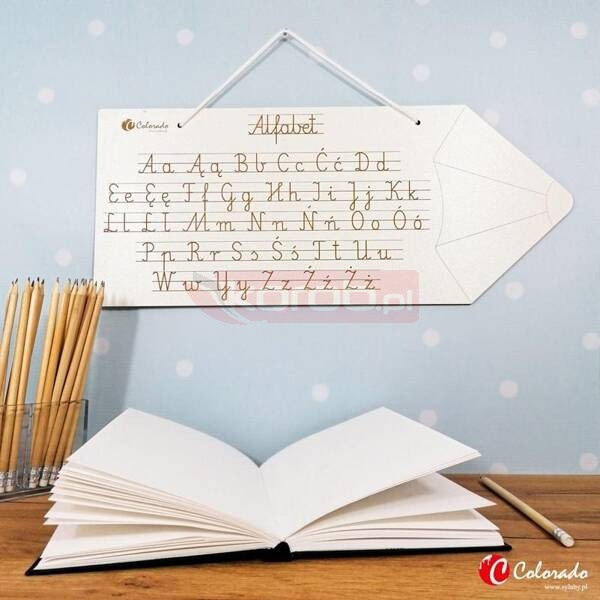 Colorado
Alfabet
Aa Ąą Bb Cc Ćć Dd
Ee Ęę Ff Gg Hh Ii Jj Kk
Ll Łł Mm Nn Ńń Oo Óó
Pp Rr Ss Śś Tt Uu
Ww Yy Zz Źź Żż
toroo.pl
Colorado
www.sylaby.pl